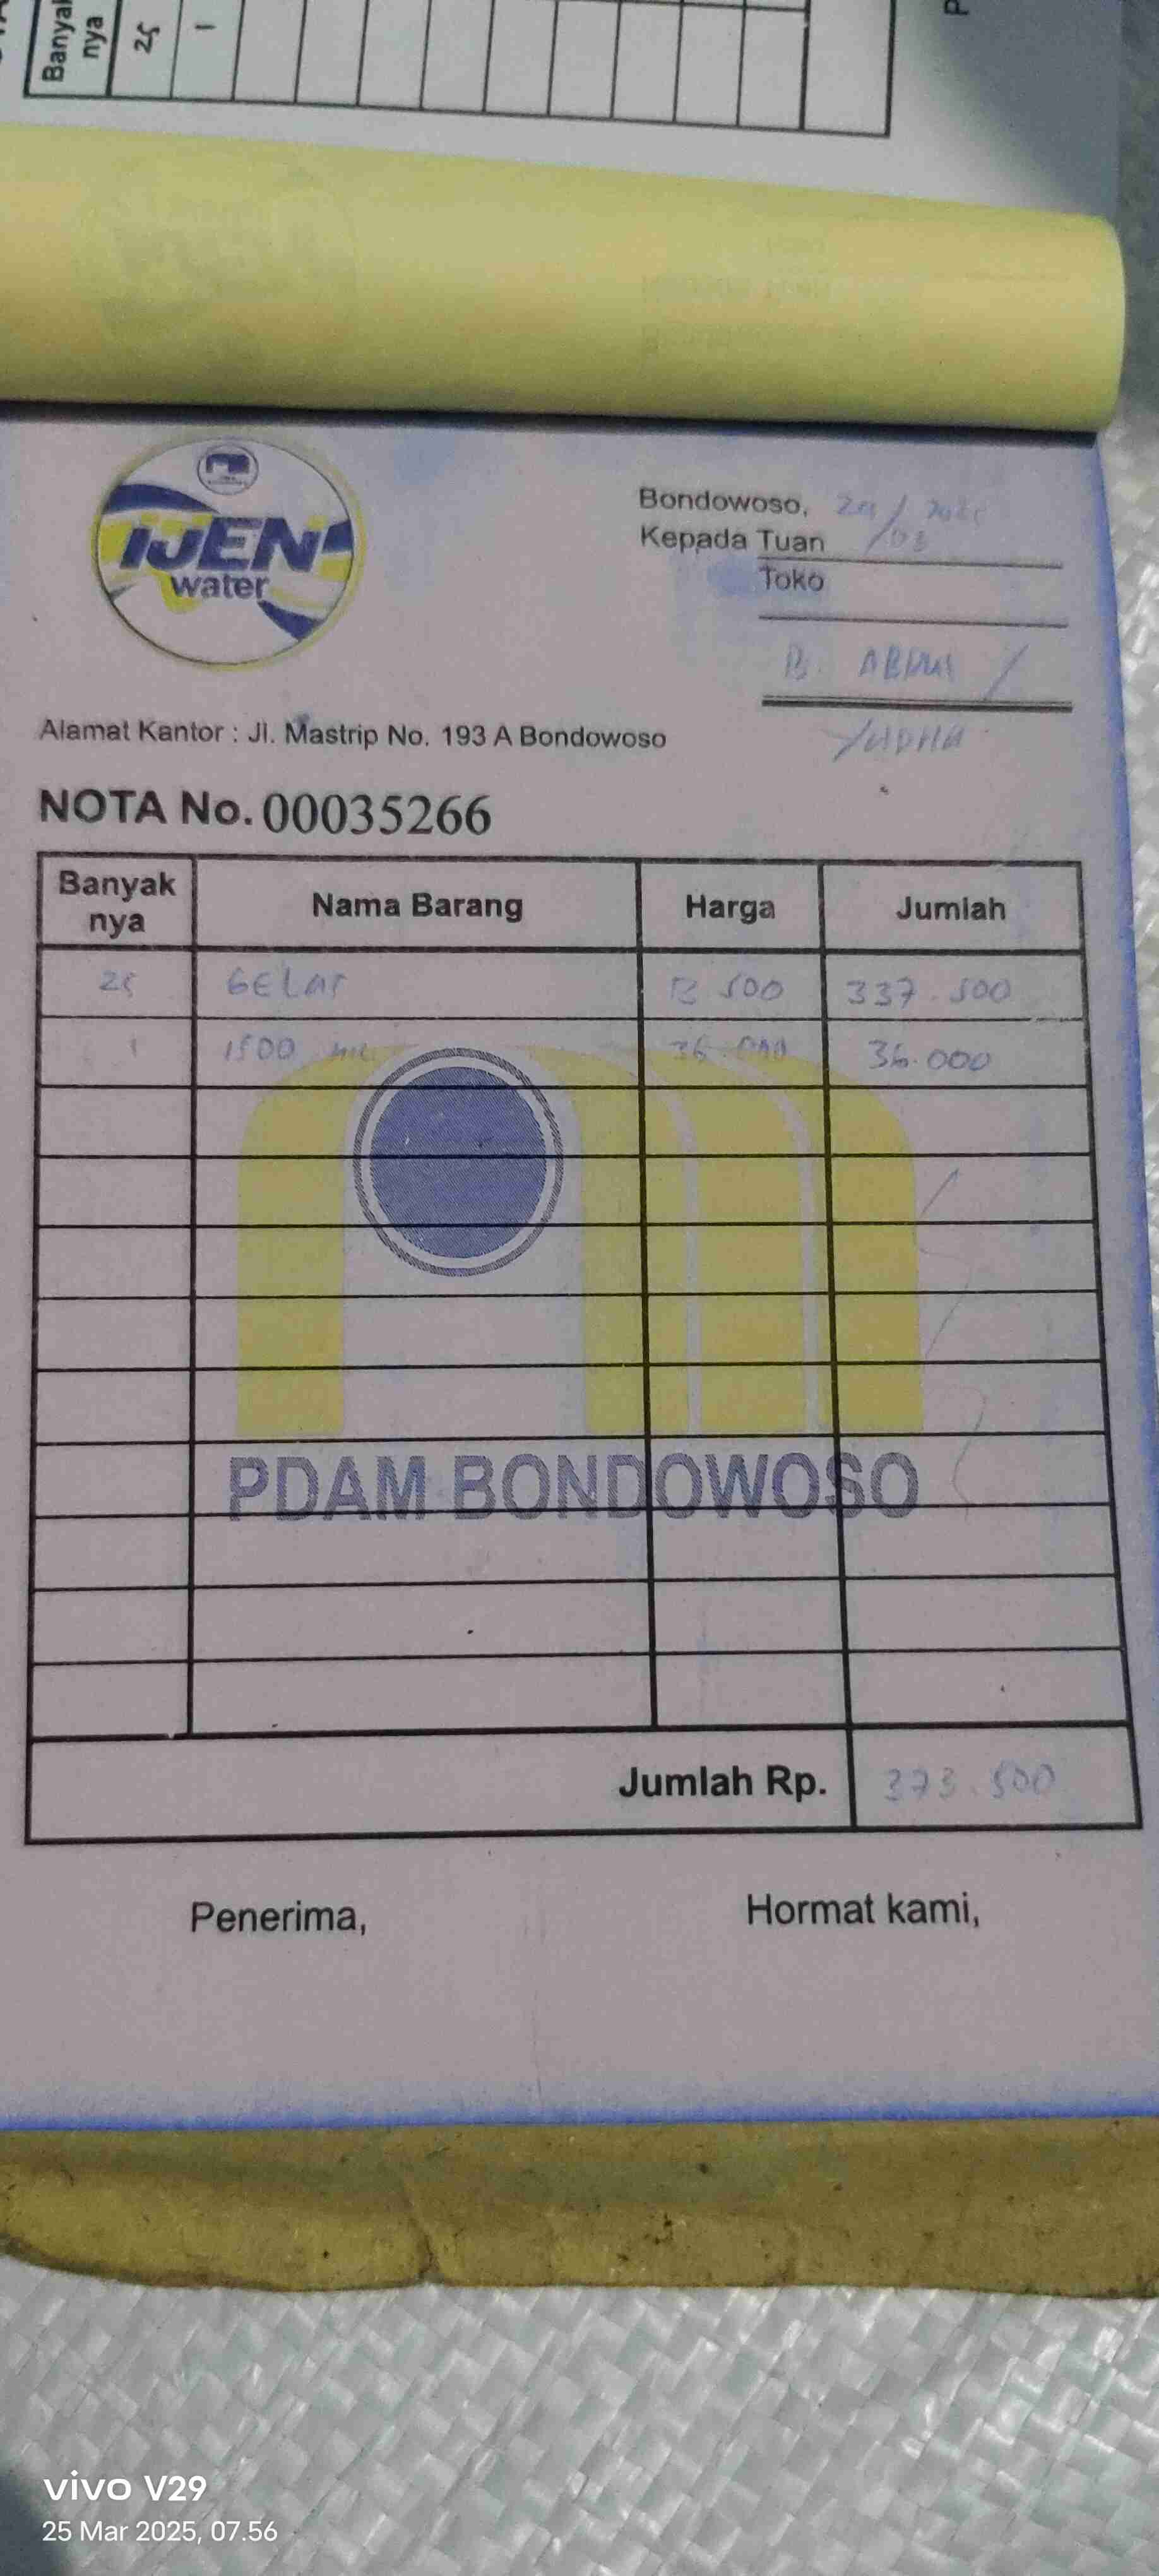 Banyak
nya
25
1
IJEN
water
Bondowoso,
Kepada Tuan
Toko
B.
Alamat Kantor : Jl. Mastrip No. 193 A Bondowoso
NOTA No. 00035266
Banyak nya Nama Barang Harga Jumlah
25 GELAS 13 500 337.500
1 1500 ML 36.000 36.000
PDAM BONDOWOSO
Jumlah Rp. 373.500
Penerima, Hormat kami,
vivo V29
25 Mar 2025, 07.56